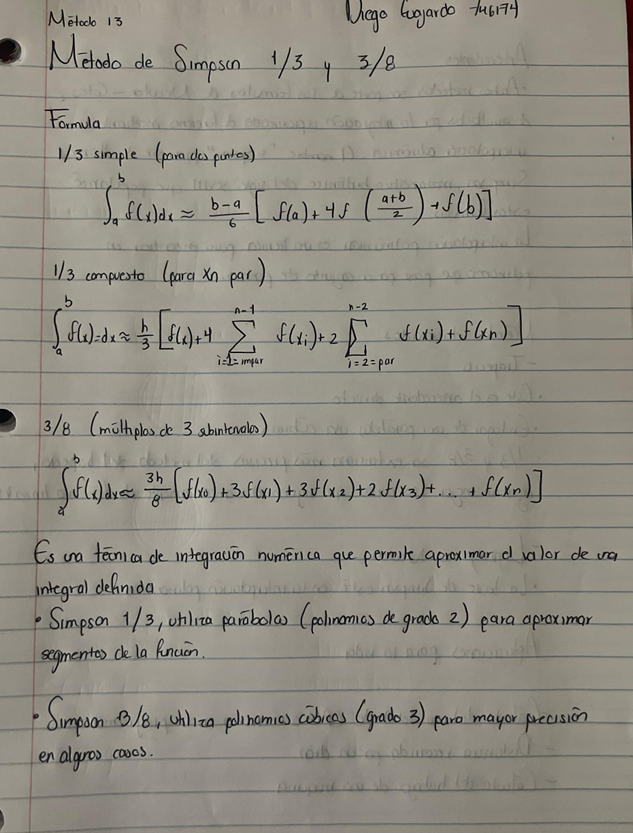 Método 13
Diego Guajardo 746174
Método de Simpson 1/3 y 3/8
Fórmula
1/3 simple (para dos puntos)
∫_a^b f(x)dx ≈ (b-a)/6 [ f(a) + 4f ((a+b)/2) + f(b) ]
1/3 compuesto (para Xn par)
∫_a^b f(x)=dx ≈ h/3 [ f(x) + 4 ∑_{i=1=impar}^{n-1} f(xi) + 2 ∑_{i=2=par}^{n-2} f(xi) + f(xn) ]
3/8 (múltiplos de 3 subintervalos)
∫_a^b f(x)dx ≈ 3h/8 [ f(x0) + 3f(x1) + 3f(x2) + 2f(x3) + ... + f(xn) ]
Es una técnica de integración numérica que permite aproximar el valor de una
integral definida
• Simpson 1/3, utiliza parábolas (polinomios de grado 2) para aproximar
segmentos de la función.
• Simpson 3/8, utiliza polinomios cúbicos (grado 3) para mayor precisión
en algunos casos.